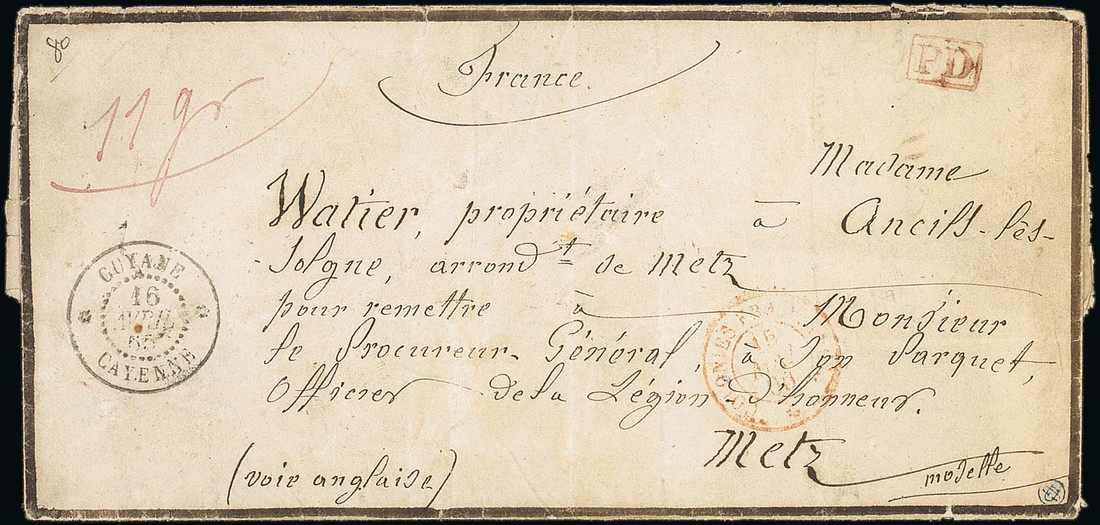 80
France.
PD
11 gr
Madame
Watier, propriétaire à Ancils-les-
Jologne, arrond.t de Metz
pour remettre à Monsieur
le Procureur-Général, à Son Parquet,
Officier de la Légion d'honneur.
Metz
moselle
(voir anglaise)
GUYANE
16
AVRIL
65
CAYENNE
COLONIES FRA